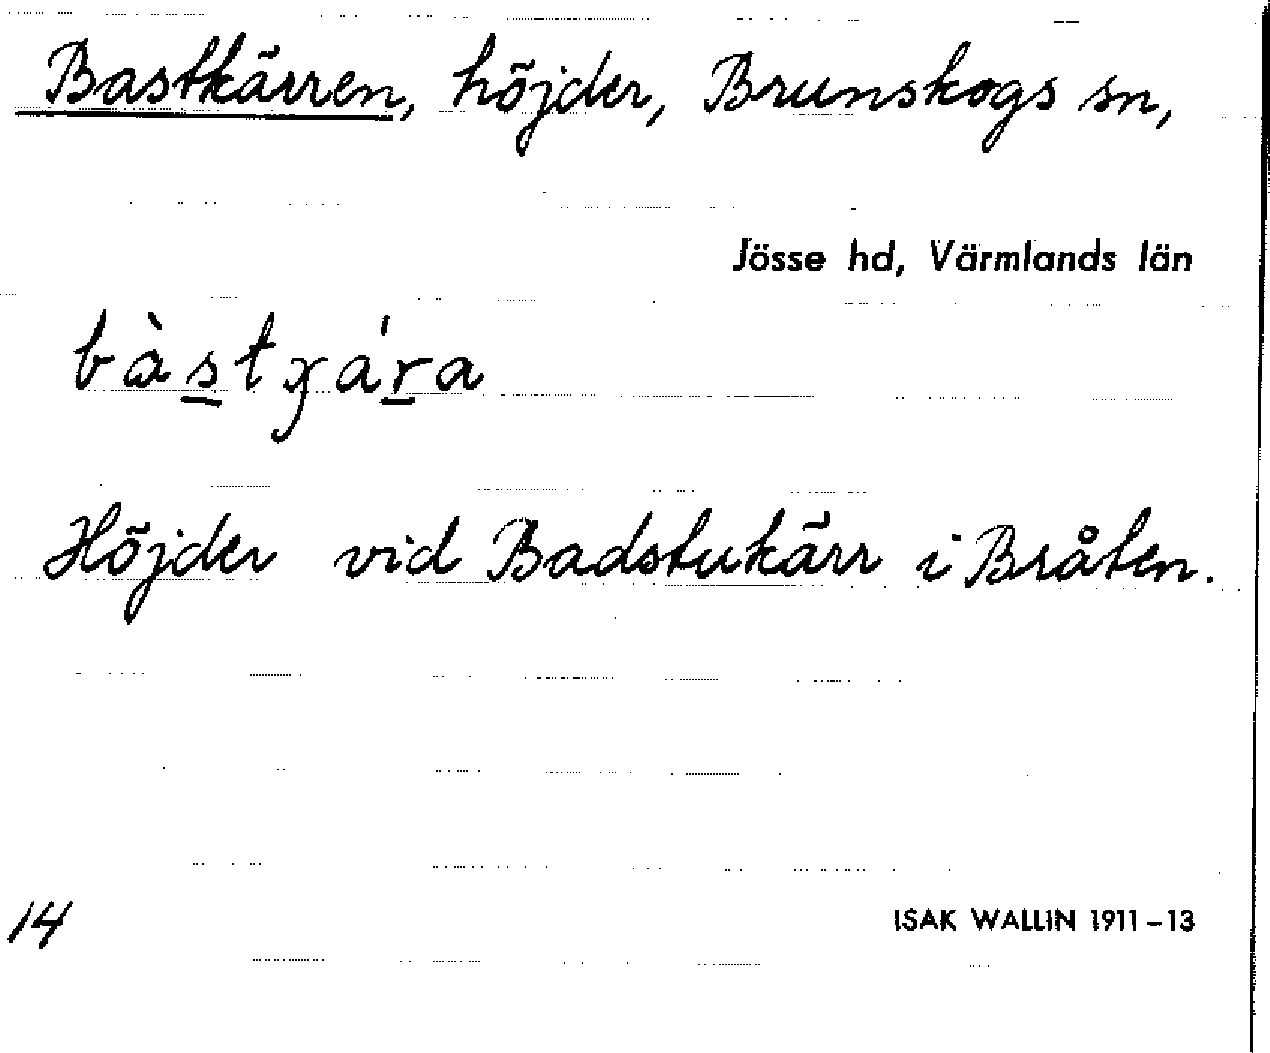 Bastkärren, höjder, Brunskogs sn,
Jösse hd, Värmlands län
bàs̲tɣa'r̲a
Höjder vid Badstukärr i Bråten.
14
ISAK WALLIN 1911-13